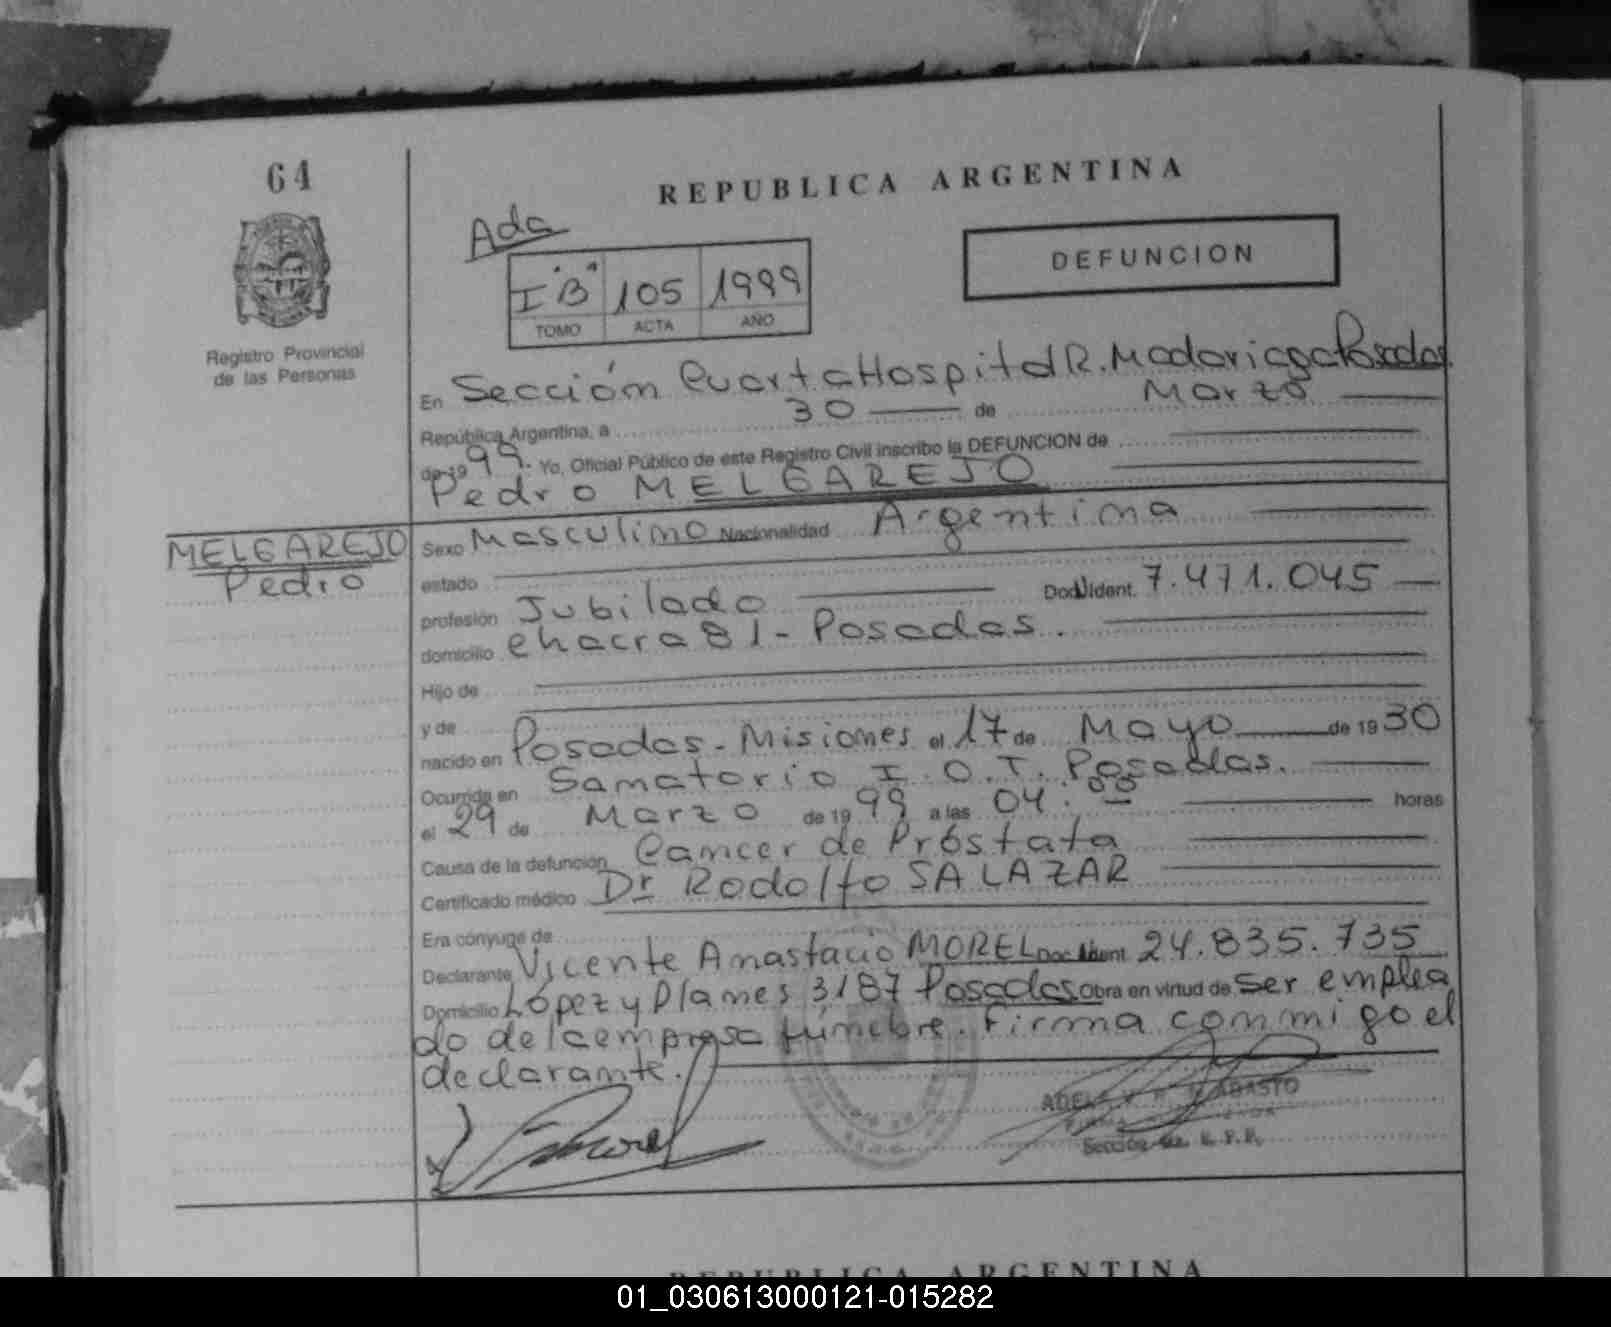 64
REPUBLICA ARGENTINA
Ada
I "B" 105 1999
TOMO ACTA AÑO
DEFUNCION
Registro Provincial
de las Personas
En Sección Cuarta Hospital R. Madariaga Posadas
República Argentina, a 30 de Marzo
de 19 99. Yo, Oficial Público de este Registro Civil inscribo la DEFUNCION de
Pedro MELGAREJO
MELGAREJO
Pedro
Sexo Masculino Nacionalidad Argentina
estado
profesión Jubilado Doc. Ident. 7.471.045
domicilio chacra 81 - Posadas.
Hijo de
y de
nacido en Posadas - Misiones el 17 de Mayo de 19 30
Ocurrida en Sanatorio I.O.T. Posadas.
el 29 de Marzo de 19 99 a las 04:00 horas
Causa de la defunción Cancer de Próstata
Certificado médico Dr Rodolfo SALAZAR
Era cónyuge de
Declarante Vicente Anastacio MOREL Doc. Ident. 24.835.735
Domicilio López y Planes 3187 Posadas Obra en virtud de ser emplea
do de la empresa fúnebre. Firma conmigo el
declarante.
REPUBLICA ARGENTINA
01_030613000121-015282